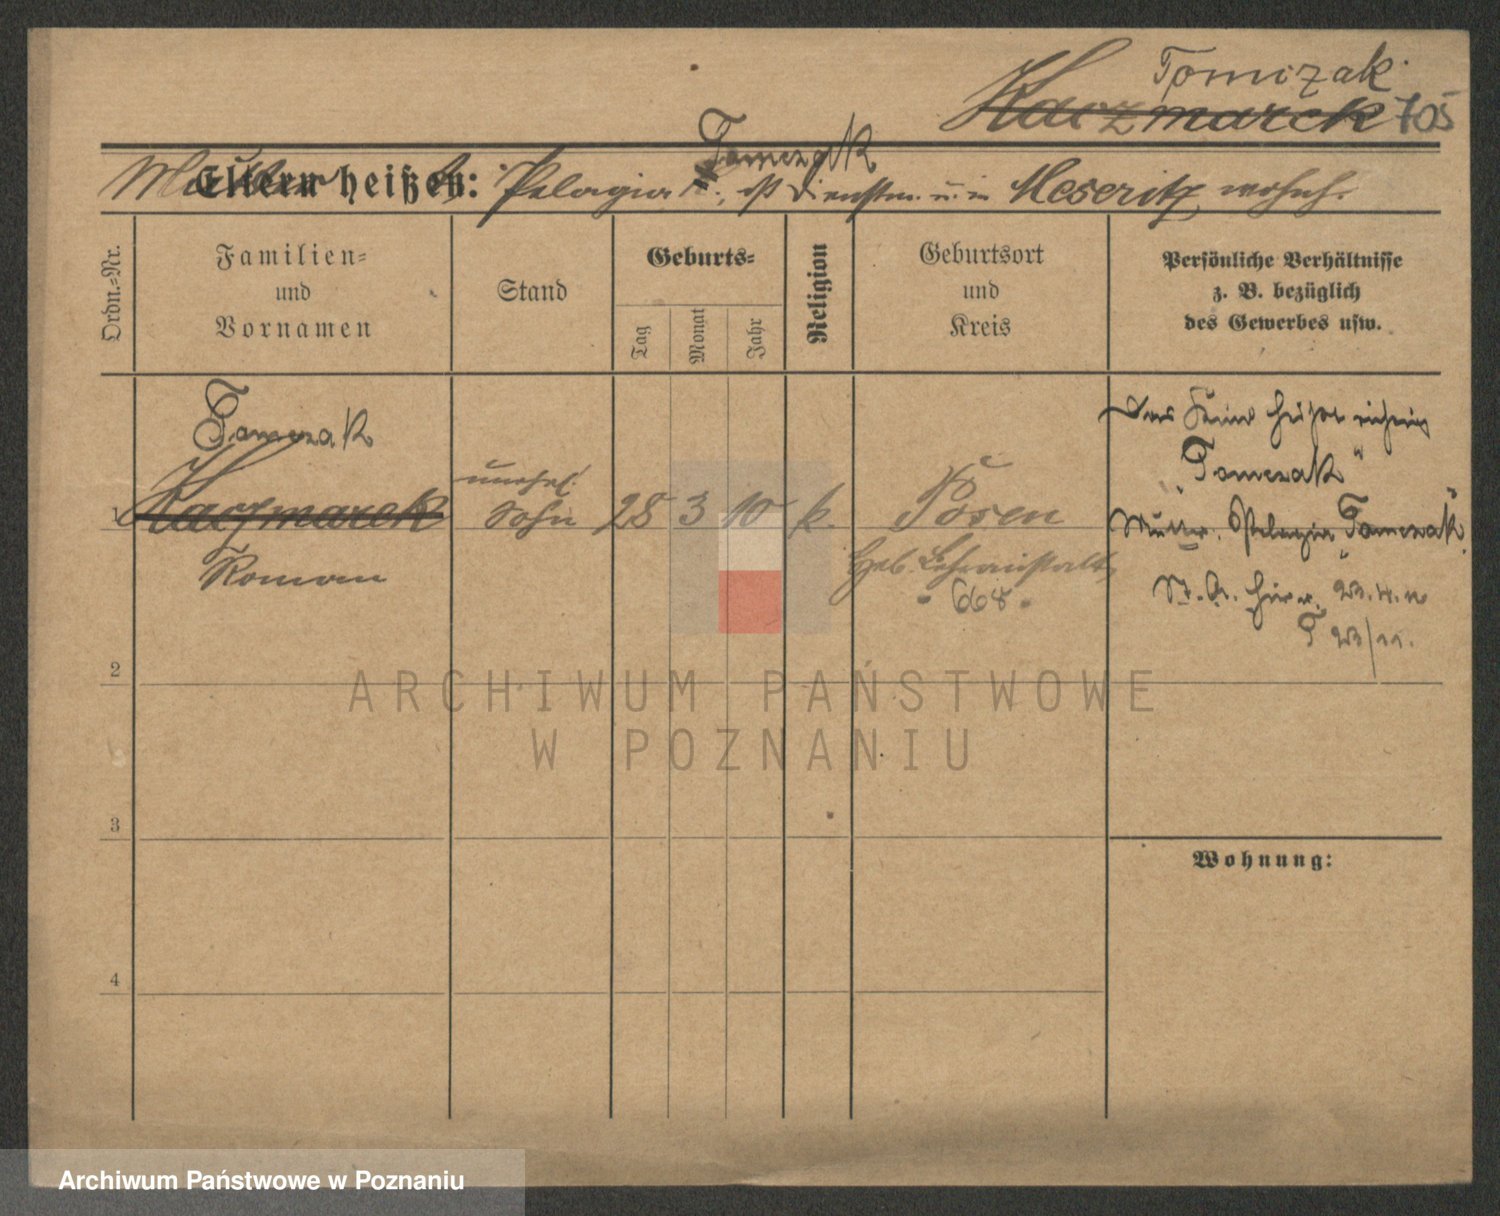 Tomczak
Kaczmarek 705
Tomczak
Eltern heißen: Pelagia K., ist Dienstm. u. in Meseritz wohnh.
Ordn.-Nr.
Familien-
und
Vornamen
Stand
Geburts-
Tag
Monat
Jahr
Religion
Geburtsort
und
Kreis
Persönliche Verhältnisse
z. B. bezüglich
des Gewerbes usw.
1
Tomczak
Kaczmarek
Roman
unehel.
Sohn
28 3 10 k.
Posen
Geb. Lehranstalt
- 668 -
Das Kind heißt richtig
"Tomczak"
Mutter. Pelagia "Tomczak"
St. A. hier v.
2
3
4
Wohnung:
ARCHIWUM PAŃSTWOWE
W POZNANIU
Archiwum Państwowe w Poznaniu